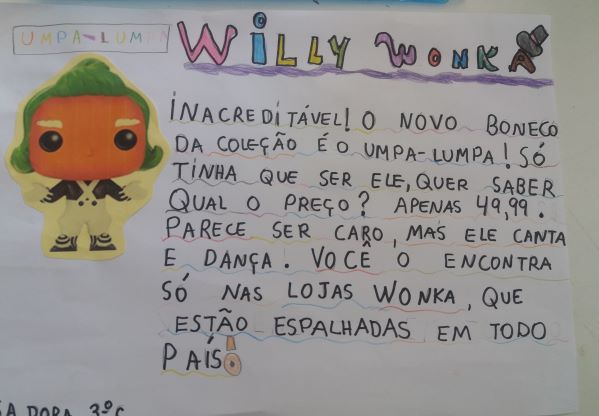 UMPA-LUMPA
WILLY WONKA
INACREDITÁVEL! O NOVO BONECO
DA COLEÇÃO É O UMPA-LUMPA! SÓ
TINHA QUE SER ELE, QUER SABER
QUAL O PREÇO? APENAS 49,99.
PARECE SER CARO, MAS ELE CANTA
E DANÇA. VOCÊ O ENCONTRA
SÓ NAS LOJAS WONKA, QUE
ESTÃO ESPALHADAS EM TODO
PAÍS!
3ºC